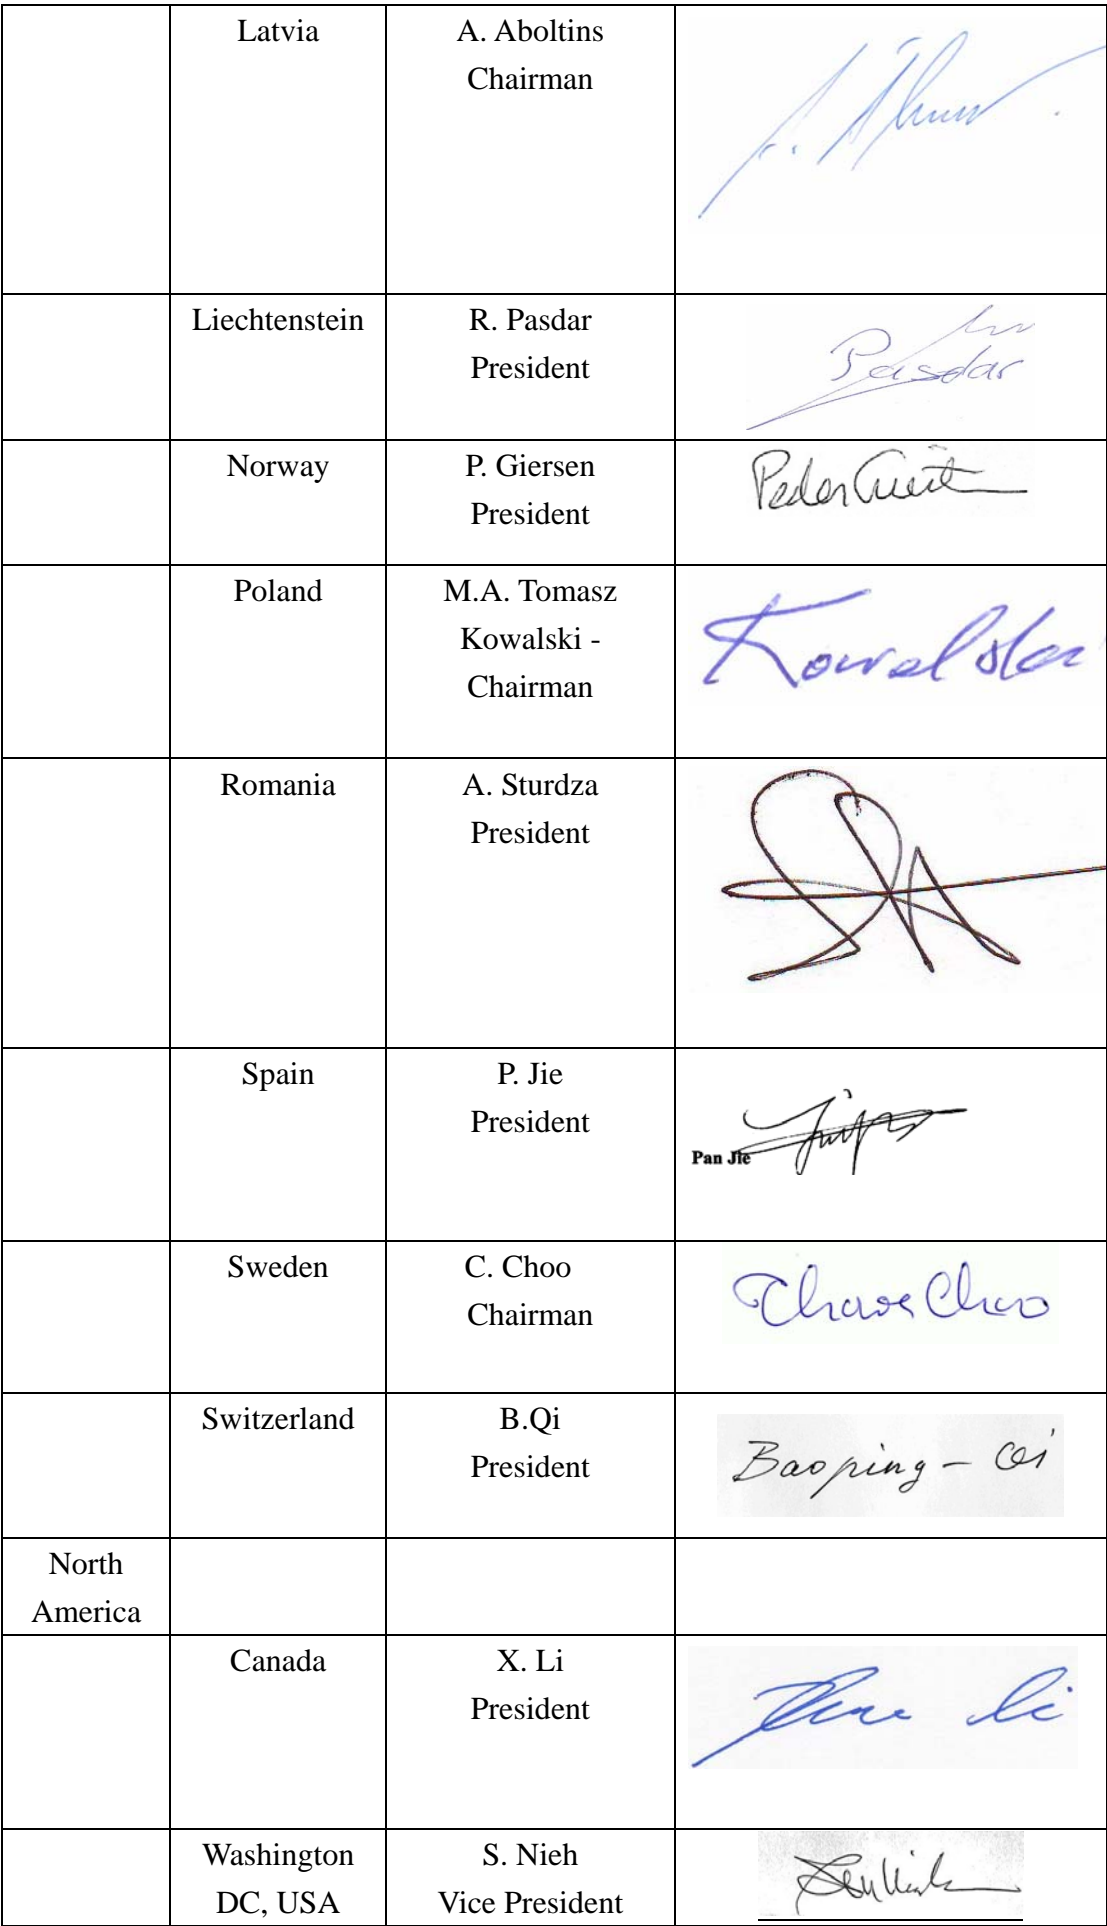 Latvia
A. Aboltins
Chairman
Liechtenstein
R. Pasdar
President
Pasdar
Norway
P. Giersen
President
Peder
Poland
M.A. Tomasz
Kowalski -
Chairman
Kowalski
Romania
A. Sturdza
President
Spain
P. Jie
President
Pan Jie
Sweden
C. Choo
Chairman
Choo
Switzerland
B.Qi
President
Baoping - Qi
North
America
Canada
X. Li
President
Li
Washington
DC, USA
S. Nieh
Vice President